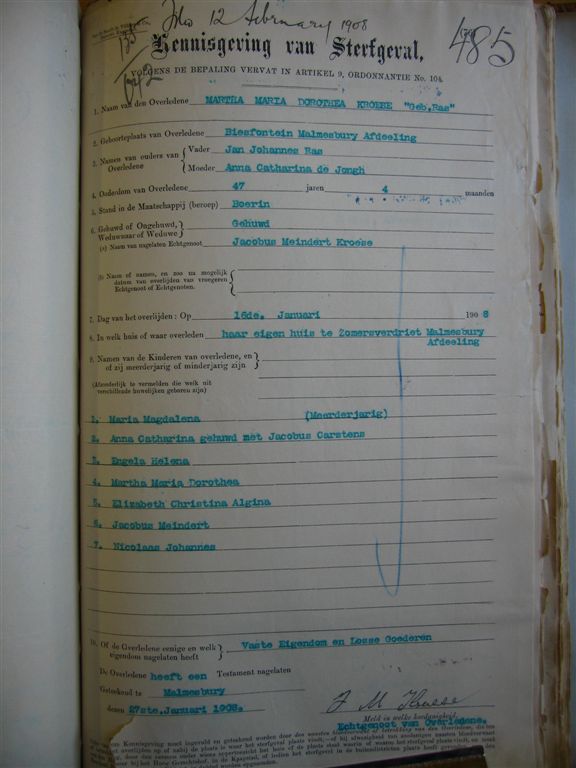 12 February 1908
485
Kennisgeving van Sterfgeval,
VOLGENS DE BEPALING VERVAT IN ARTIKEL 9, ORDONNANTIE No. 104.
1. Naam van den Overledene MARTHA MARIA DOROTHEA KROESE "Geb.Ras"
2. Geboorteplaats van Overledene Biesfontein Malmesbury Afdeeling
3. Namen van ouders van Overledene { Vader Jan Johannes Ras
Moeder Anna Catharina de Jongh
4. Ouderdom van Overledene 47 jaren 4 maanden
5. Stand in de Maatschappij (beroep) Boerin
6. Gehuwd of Ongehuwd, Weduwnaar of Weduwe } Gehuwd
(a) Naam van nagelaten Echtgenoot Jacobus Meindert Kroese
(b) Naam of namen, en zoo na mogelijk
datum van overlijden van vroegeren
Echtgenoot of Echtgenoten. {
7. Dag van het overlijden : Op 16de. Januari 190 8
8. In welk huis of waar overleden haar eigen huis te Zomersverdriet Malmesbury
Afdeeling
9. Namen van de Kinderen van overledene, en
of zij meerderjarig of minderjarig zijn }
(Afzonderlijk te vermelden die welk uit
verschillende huwelijken geboren zijn)
1. Maria Magdalena (Meerderjarig)
2. Anna Catharina gehuwd met Jacobus Carstens
3. Engela Helena
4. Martha Maria Dorothea
5. Elizabeth Christina Algina
6. Jacobus Meindert
7. Nicolaas Johannes
10. Of de Overledene eenige en welk
eigendom nagelaten heeft } Vaste Eigendom en Losse Goederen
De Overledene heeft een Testament nagelaten
Geteekend te Malmesbury
dezen 27ste.Januari 1908.
J M Kroese
Meld in welke hoedanigheid.
Echtgenoot van Overledene.